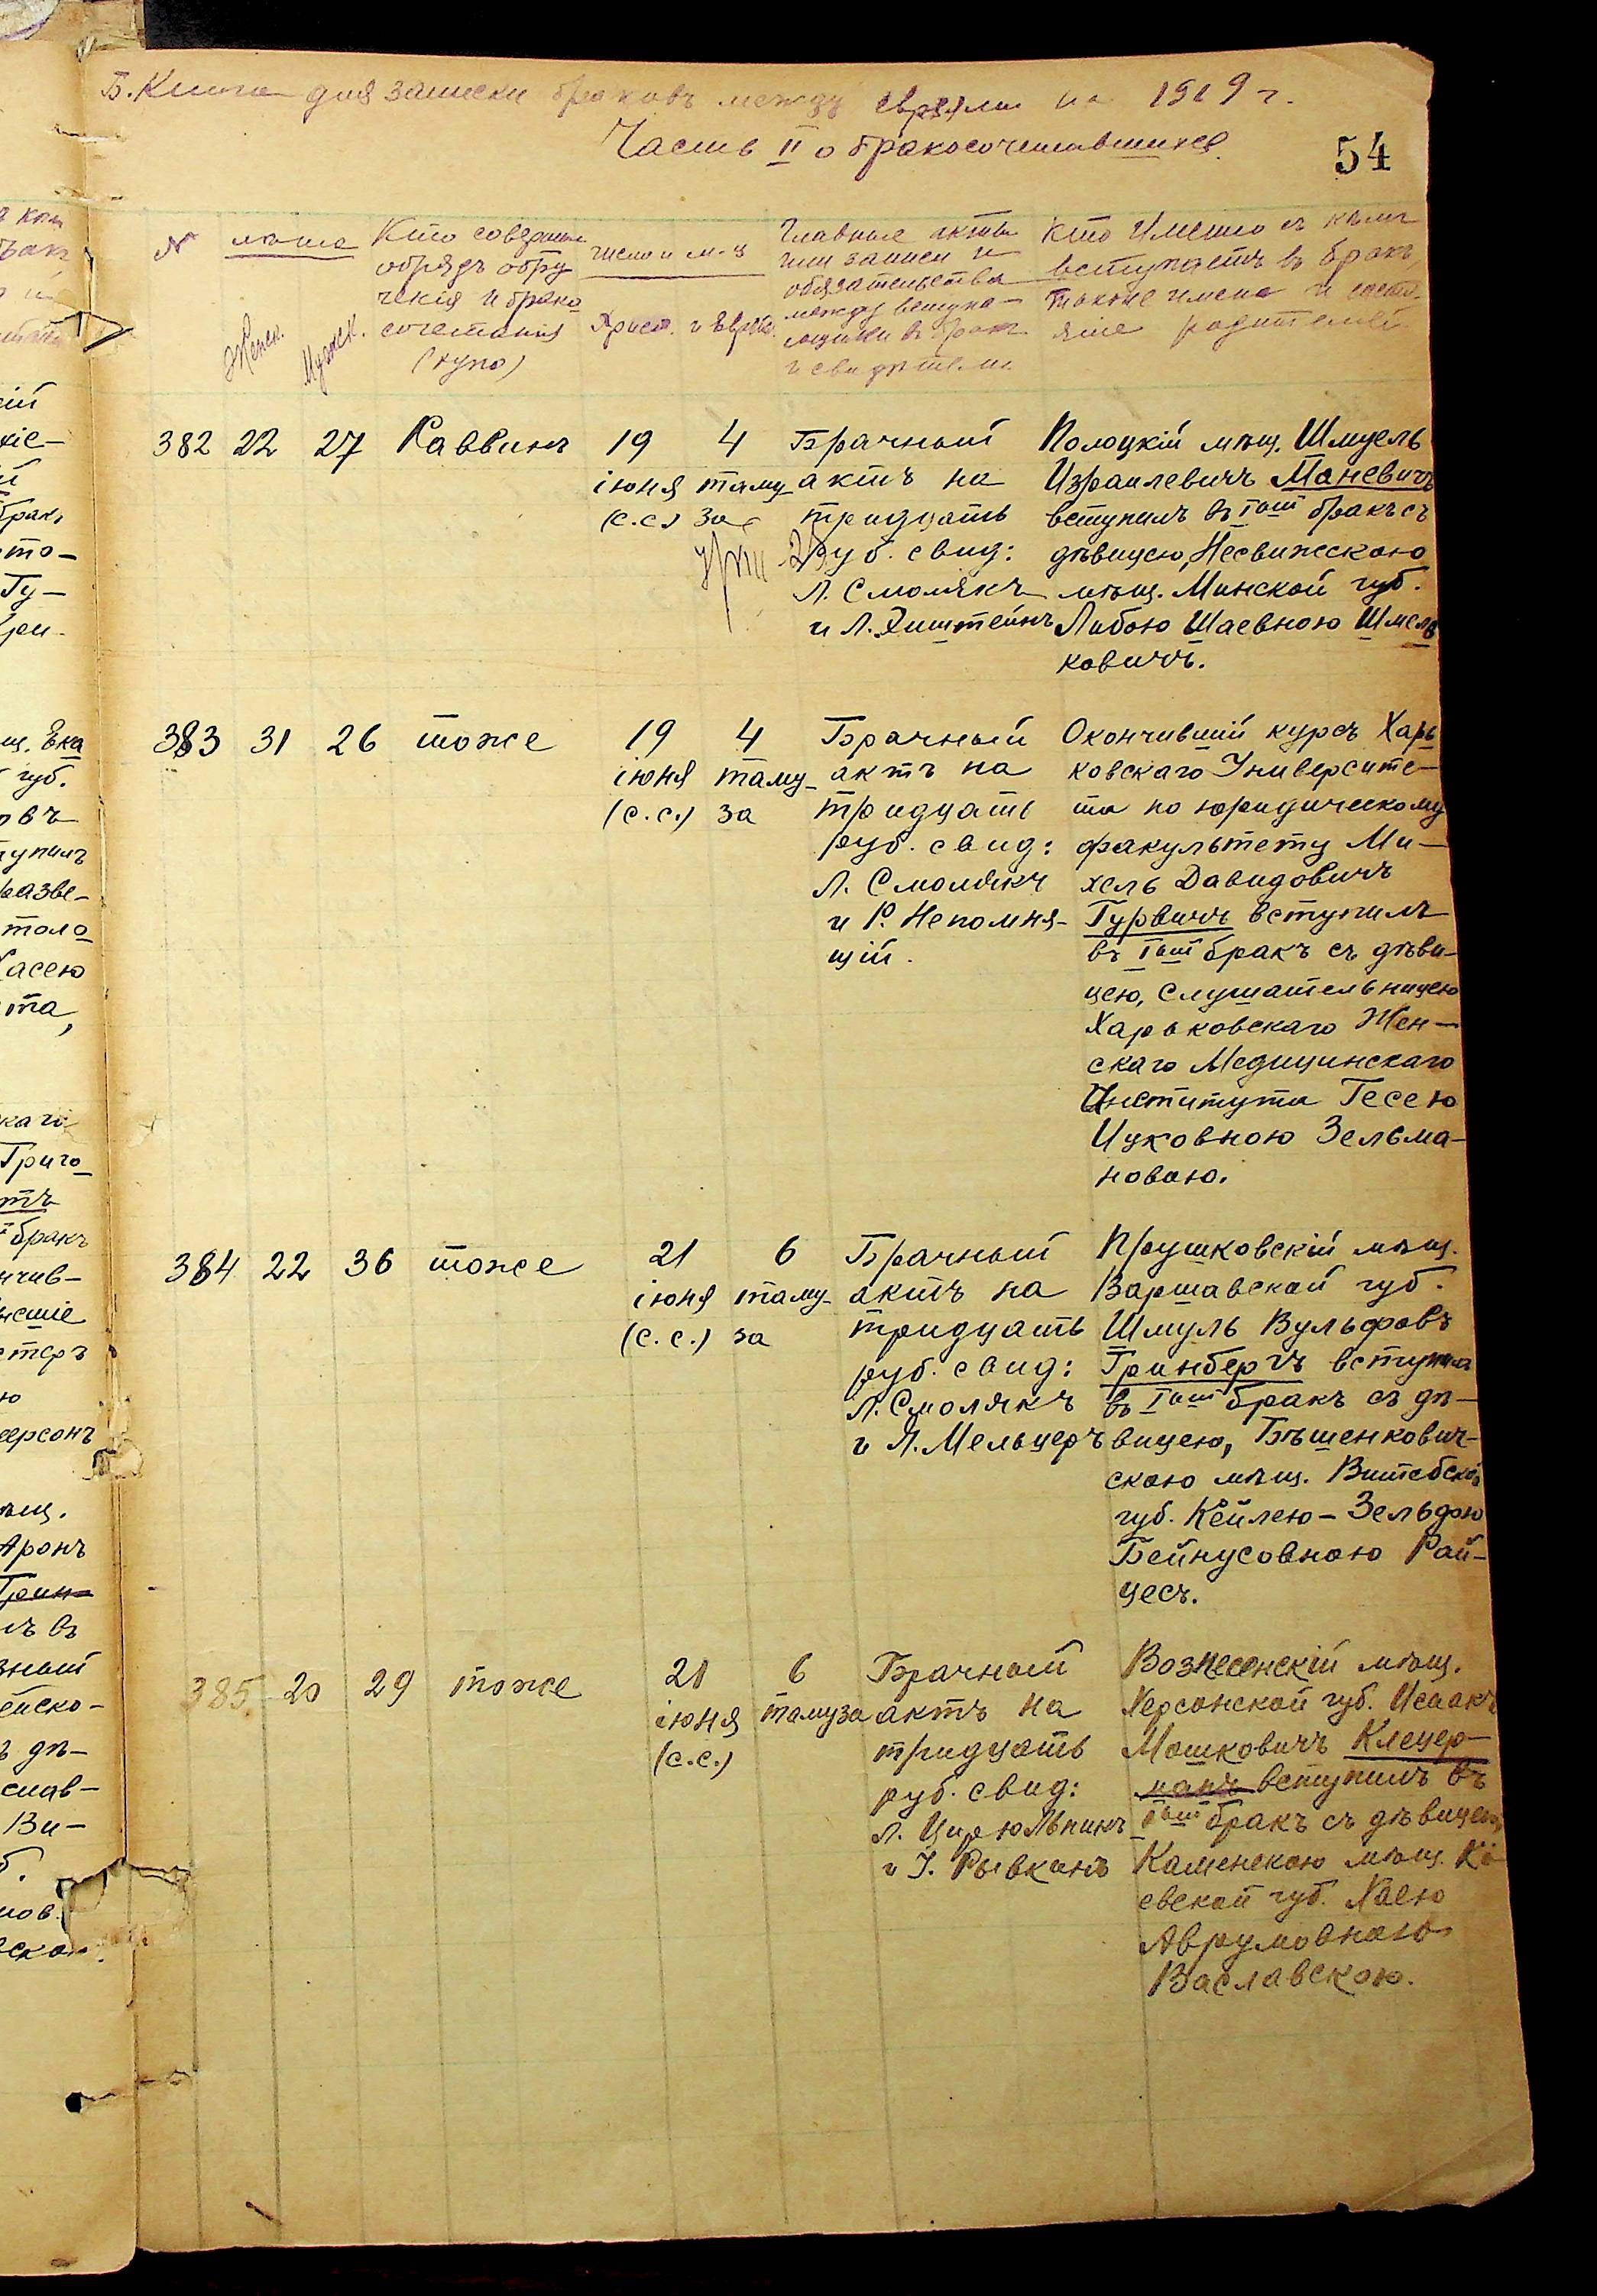 Б. Книга для записки браковъ между евреями на 1919 г.
Часть II о бракосочетавшихся.
54
№
лѣта
Женск.
Мужск.
Кто соверша
обрядъ обру
ченія и брако
сочетанія
(хупо)
число и м-ц
Христ. и Еврей.
Главные акты
или записи и
обязательства
между вступа-
ющими въ бракъ
и свидѣтели.
Кто именно съ кѣмъ
вступаетъ въ бракъ,
также имена и состо.
яніе родителей.
382 22 27 Раввинъ
19
іюня
(с.с.)
4
таму
за
Брачный
актъ на
тридцать
руб. свид:
Л. Смолякъ
и Л. Эпштейнъ
Полоцкій мѣщ. Шмуель
Израилевичъ Маневичъ
вступилъ въ Iый бракъ съ
дѣвицею, Несвижскою
мѣщ. Минской губ.
Либою Шаевною Шмель
ковичъ.
383 31 26 тоже
19
іюня
(с.с.)
4
таму-
за
Брачный
актъ на
тридцать
руб. свид:
Л. Смолякъ
и Р. Непомня-
щій.
Окончившій курсъ Харь
ковскаго Университе-
та по юридическому
факультету Ми-
хель Давидовичъ
Гурвичъ вступилъ
въ Iый бракъ съ дѣви-
цею, слушательницею
Харьковскаго Жен-
скаго Медицинскаго
Института Гесею
Ицковною Зельма-
новою.
384 22 36 тоже
21
іюня
(с.с.)
6
таму-
за
Брачный
актъ на
тридцать
руб. свид:
Л. Смолякъ
и Л. Мельцеръ
Прушковскій мѣщ.
Варшавской губ.
Шмуль Вульфовъ
Гринбергъ вступилъ
въ Iый бракъ съ дѣ-
вицею, Бѣшенкович-
скою мѣщ. Витебской
губ. Кейлею-Зельдою
Бейнусовною Рай-
цесъ.
385 20 29 тоже
21
іюня
(с.с.)
6
тамуза
Брачный
актъ на
тридцать
руб. свид:
Л. Цирюльникъ
и І. Рывкинъ
Вознесенскій мѣщ.
Херсонской губ. Исаакъ
Мошковичъ Клецер-
манъ вступилъ въ
Iый бракъ съ дѣвицею,
Каменскою мѣщ. Кі
евской губ. Хаею
Аврумовною
Заславскою.